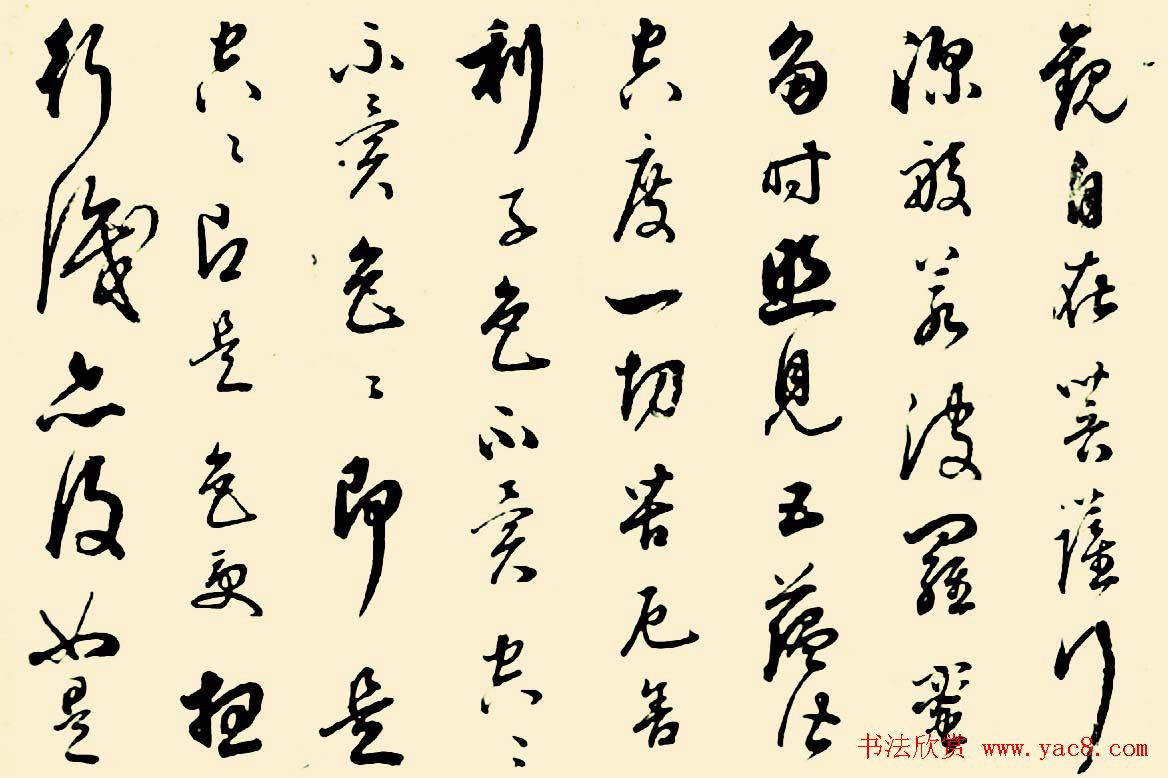 觀自在菩薩行
深般若波羅蜜
多时照見五蘊皆
空度一切苦厄舍
利子色不異空〻
不異色〻即是
空〻即是色受想
行識亦復如是
书法欣赏 www.yac8.com